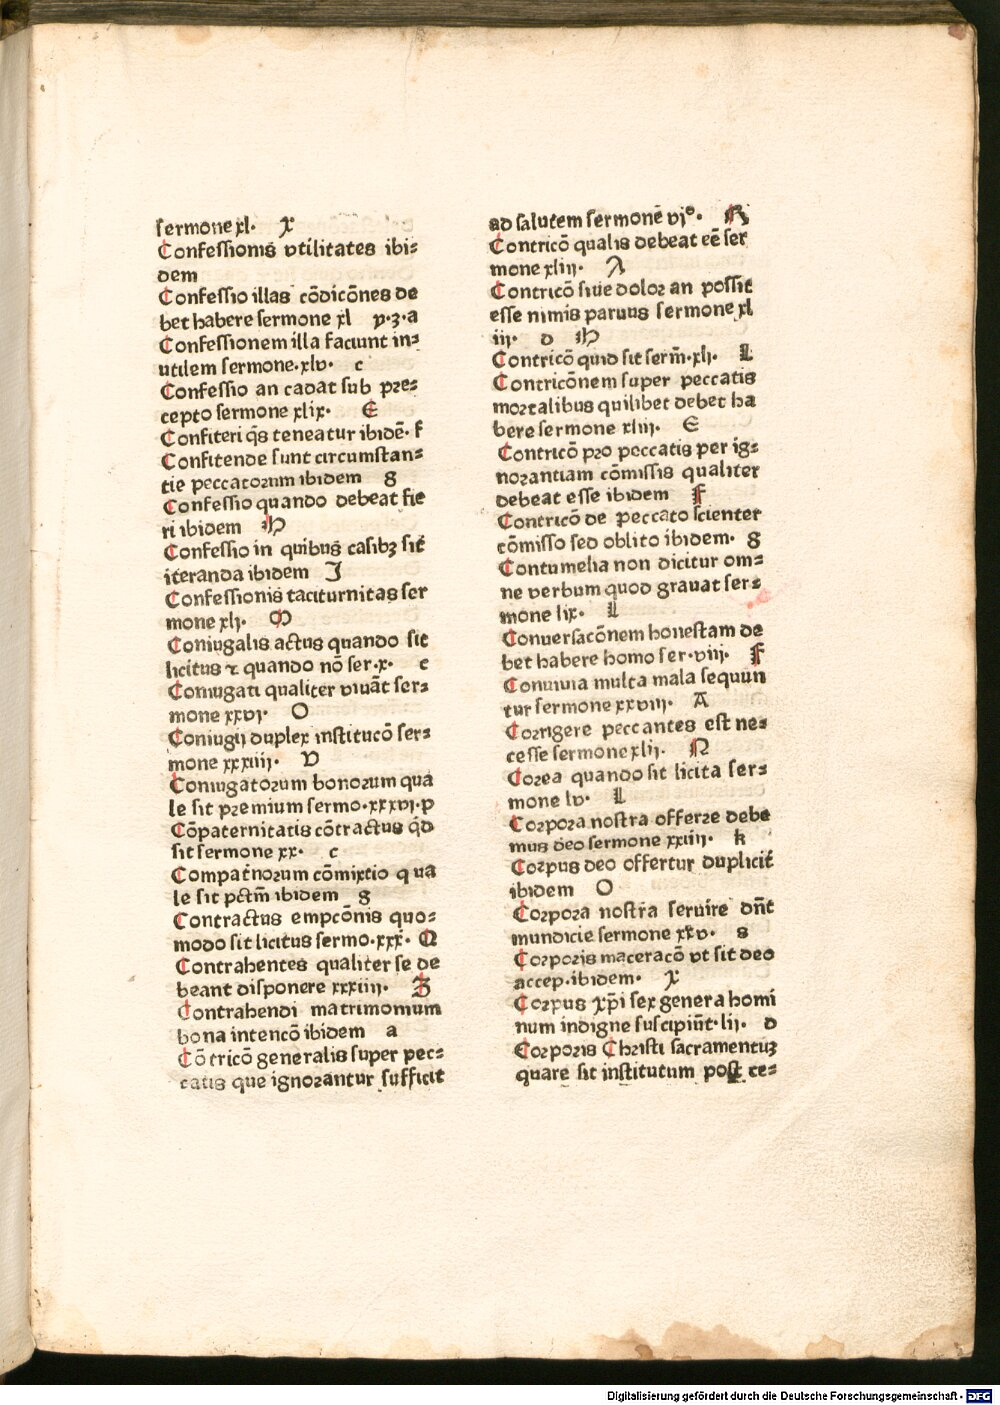 sermone xl. X
Confessionis vtilitates ibi⸗
dem
Confessio illas cōdicōnes de
bet habere sermone xl y.z.a
Confessionem illa faciunt in⸗
utilem sermone.xlv. c
Confessio an cadat sub pre⸗
cepto sermone xlix. E
Confiteri q̄s teneatur ibidē. f
Confitende sunt circumstan⸗
tie peccatorum ibidem g
Confessio quando debeat fie
ri ibidem H
Confessio in quibus casibꝫ sit
iteranda ibidem I
Confessionis taciturnitas ser
mone xlj. M
Coniugalis actus quando sit
licitus ⁊ quando nō ser.x. e
Coniugati qualiter viuāt ser⸗
mone xxvj. O
Coniugij duplex institucō ser⸗
mone xxxiiij. V
Coniugatorum bonorum qua
le sit premium sermo.xxxvj.p
Cōpaternitatis cōtractus qd̄
sit sermone xx. c
Compatrnorum cōmixtio qua
le sit pctm̄ ibidem g
Contractus empcōnis quo⸗
modo sit licitus sermo.xxx. Q
Contrahentes qualiter se de
beant disponere xxxiiij. Z
Contrahendi matrimonium
bona intencō ibidem a
Cōtricō generalis super pec⸗
catis que ignorantur sufficit
ad salutem sermonē vjº. R
Contricō qualis debeat eē ser
mone xliij. A
Contricō siue dolor an possit
esse nimis paruus sermone xl
iij. d H
Contricō quid sit serm̄.xlj. L
Contricōnem super peccatis
mortalibus quilibet debet ha
bere sermone xliij. E
Contricō pro peccatis per ig⸗
norantiam cōmissis qualiter
debeat esse ibidem F
Contricō de peccato scienter
cōmisso sed oblito ibidem. g
Contumelia non dicitur om⸗
ne verbum quod grauat ser⸗
mone lix. L
Conuersacōnem honestam de
bet habere homo ser.viij. F
Conuiuia multa mala sequūn
tur sermone xxviij. A
Corrigere peccantes est ne⸗
cesse sermone xlij. N
Corea quando sit licita ser⸗
mone lv. L
Corpora nostra offerre debe
mus deo sermone xxiiij. k
Corpus deo offertur duplicit̄
ibidem O
Corpora nostra seruire dn̄t
mundicie sermone xxv. s
Corporis maceracō vt sit deo
accep.ibidem. X
Corpus xp̄i sex genera homi
num indigne suscipiūt.lij. d
Corporis Christi sacramentuꝫ
quare sit institutum post ce⸗
Digitalisierung gefördert durch die Deutsche Forschungsgemeinschaft - DFG